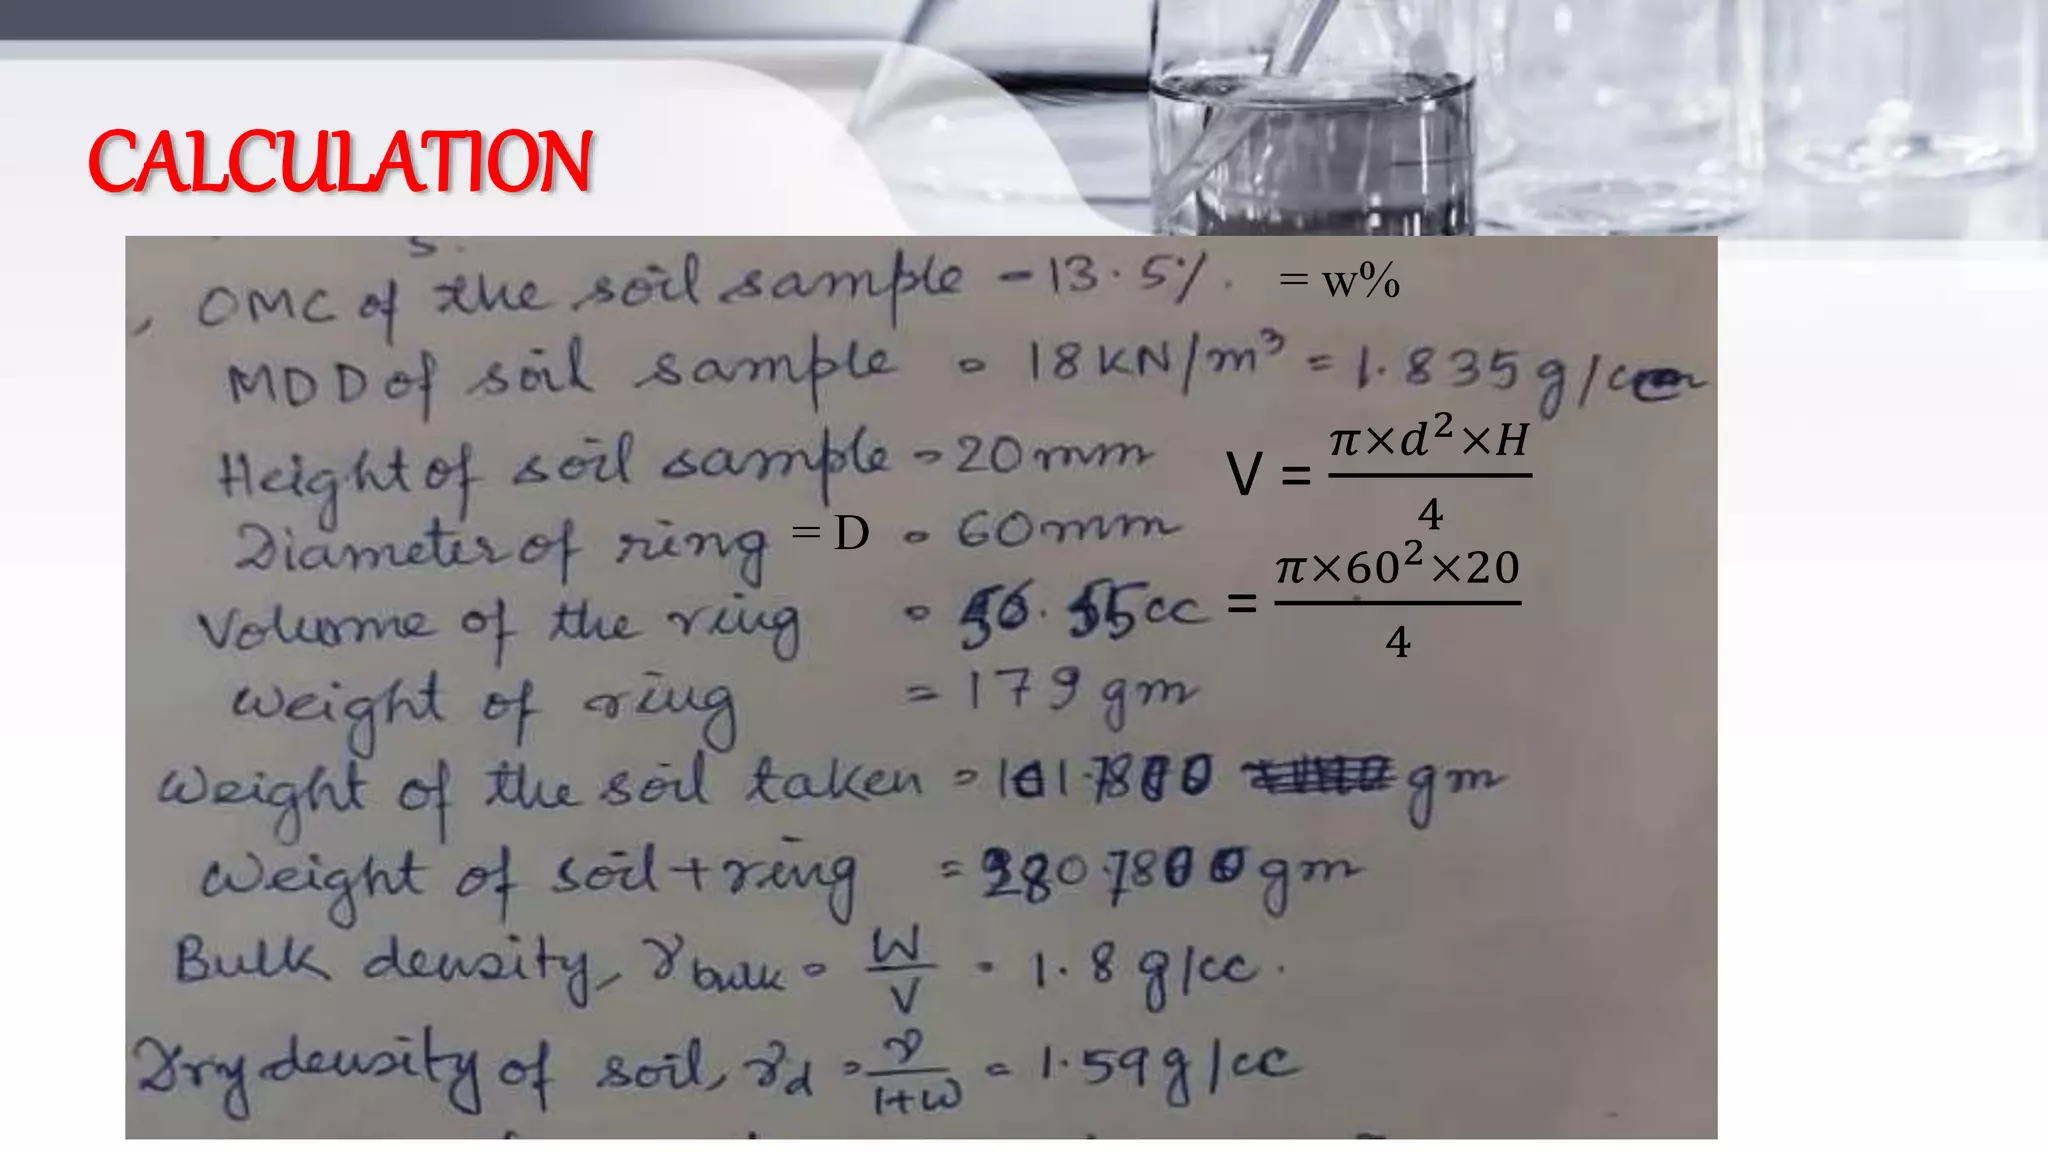 CALCULATION
OMC of the soil sample - 13.5%. = w%
MDD of soil sample = 18 KN/m³ = 1.835 g/cc
Height of soil sample = 20 mm
V = π×d²×H / 4
Diameter of ring = D = 60 mm
Volume of the ring = 56.55 cc
= π×60²×20 / 4
Weight of ring = 179 gm
Weight of the soil taken = gm
Weight of soil + ring = gm
Bulk density, γbulk = W/V = 1.8 g/cc.
Dry density of soil, γd = γ/1+w = 1.59 g/cc